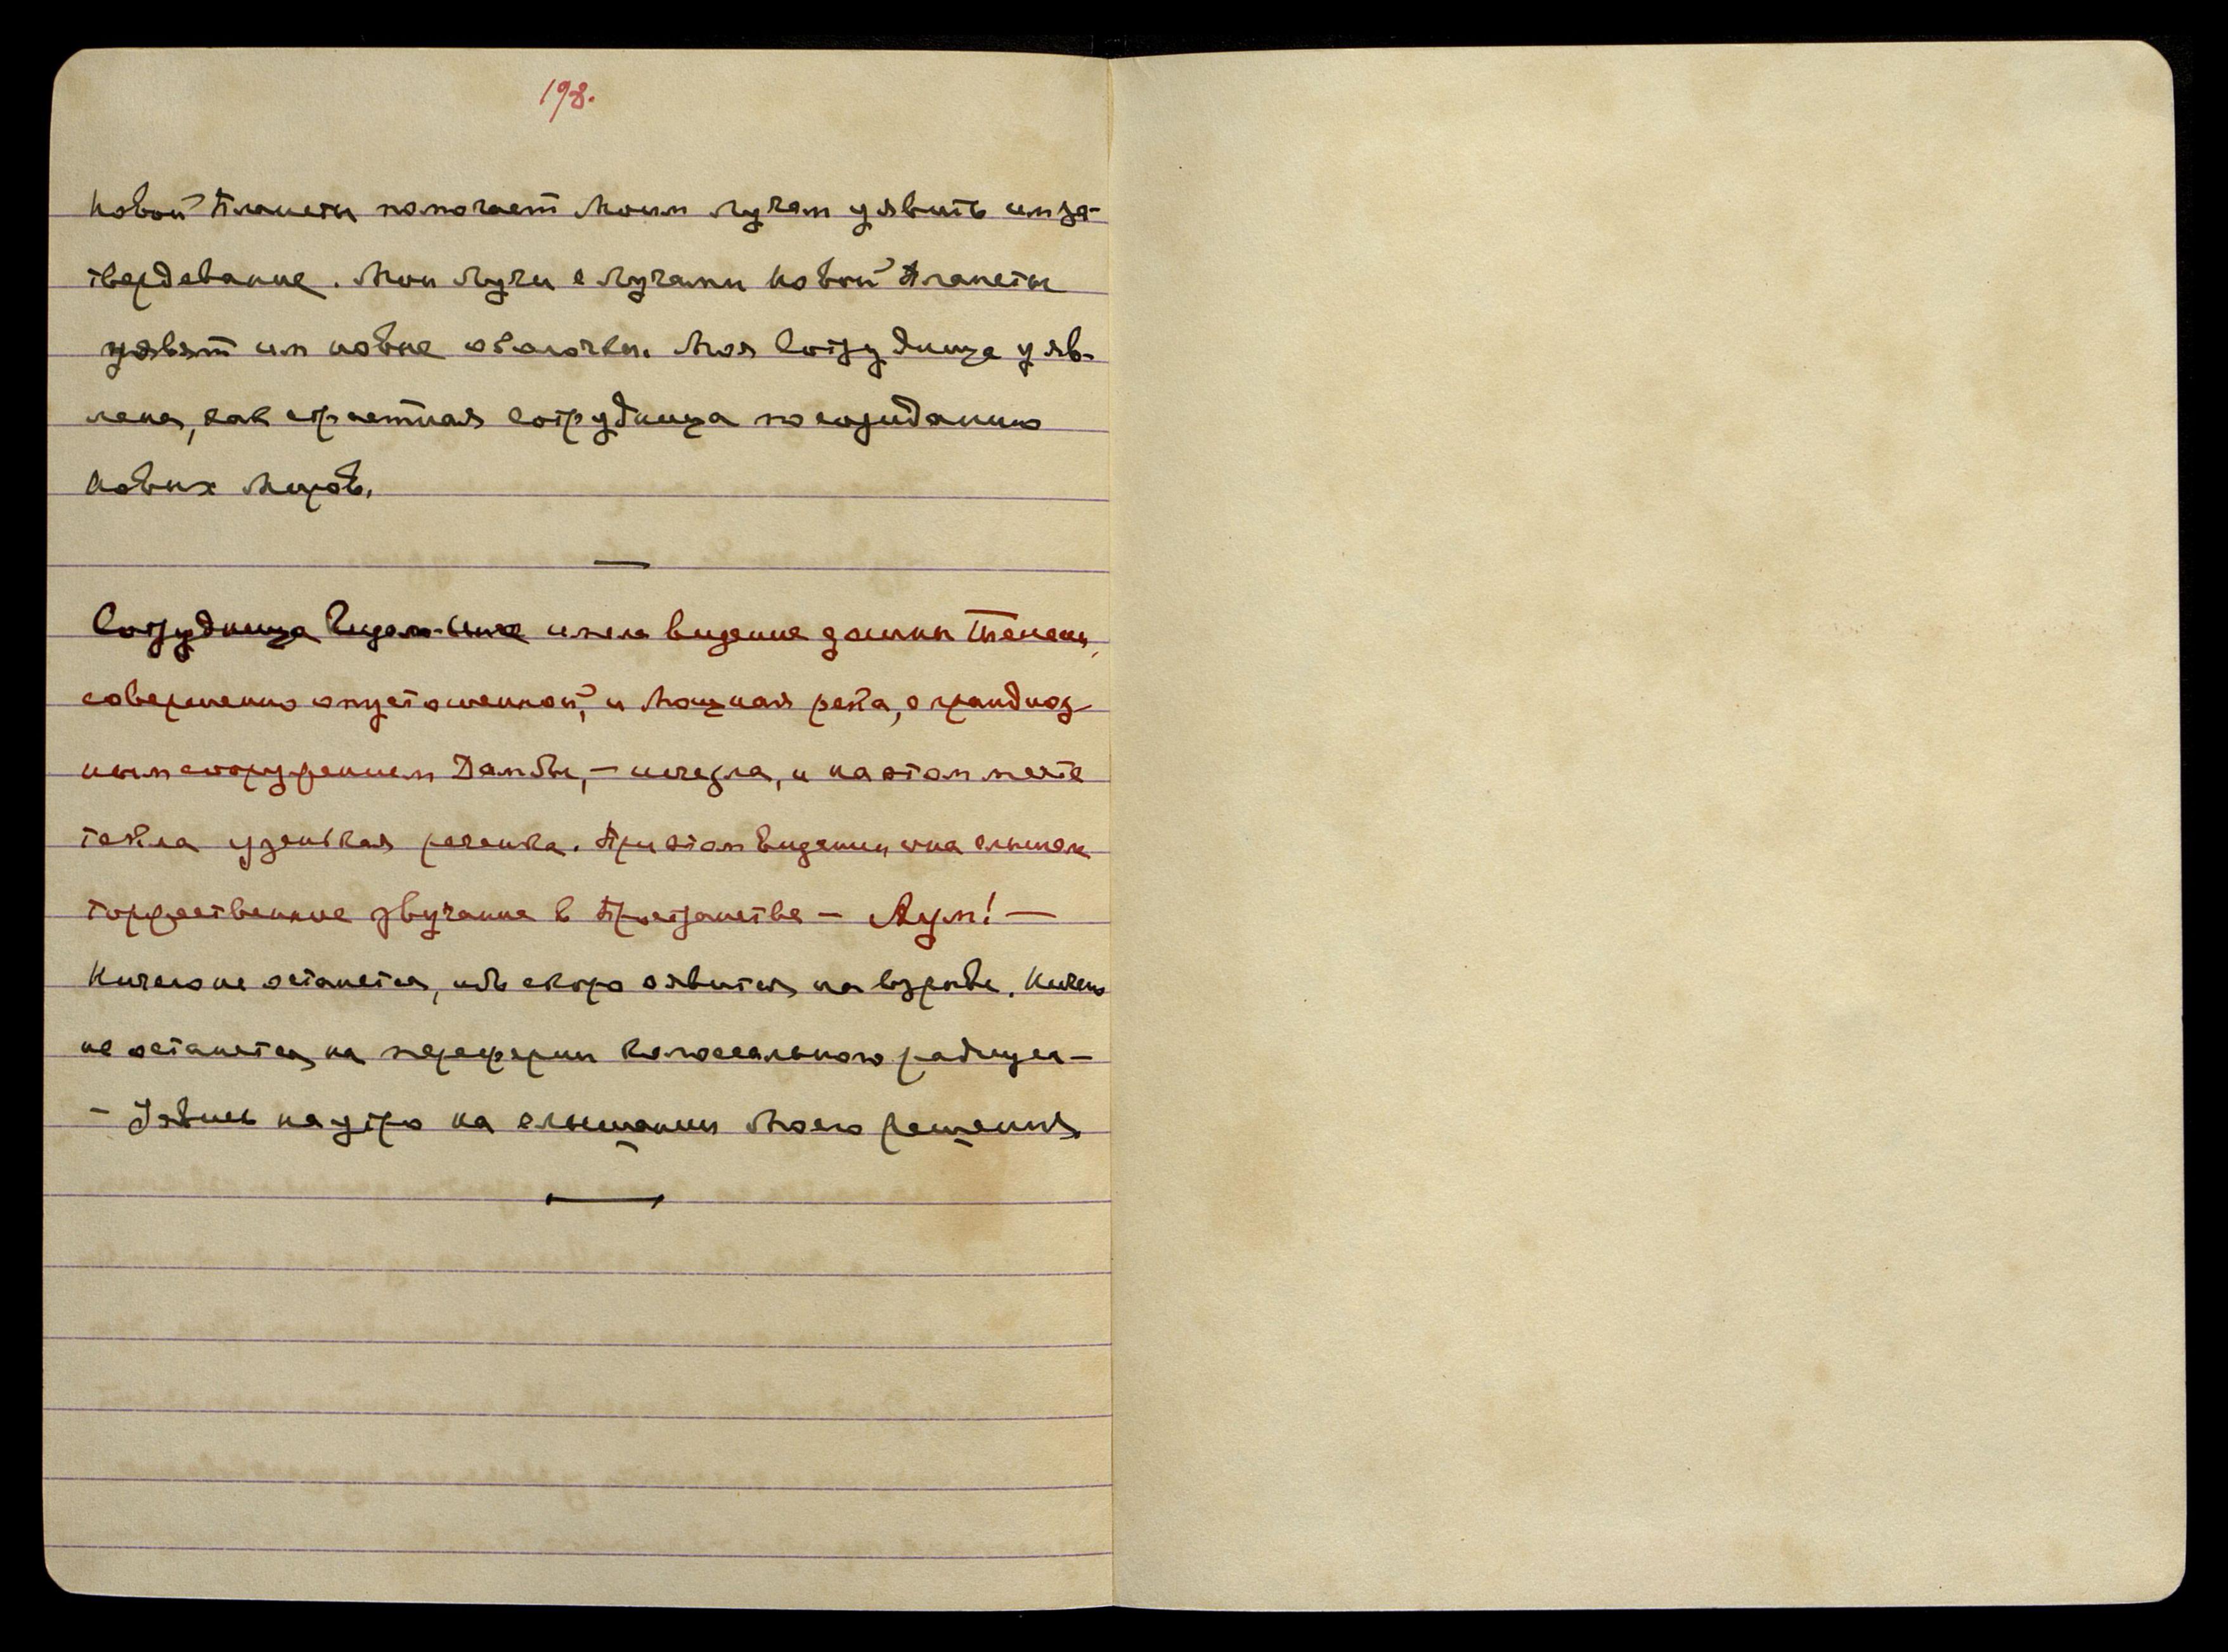 198.
Новой Планеты помогает Моим лучам уявить им за-
твердевание. Мои Лучи с Лучами Новой Планеты
уявят им новые оболочки. Моя Сотрудница уяв-
лена, как страстная сотрудница по созиданию
Новых Миров.
—
Сотрудница имела видение долины
совершенно опустошенной, и Мощная река, с грандиоз-
ным сооружением Дамбы, – исчезла, и на этом месте
текла узенькая реченка. При этом видении она слышала
торжественное звучание в Пространстве – Аум! –
Ничего не останется, ибо скоро явится на взрыве. Ничего
не останется на периферии колоссального радиуса –
– Уявись на утро на слышании Моего решения
—